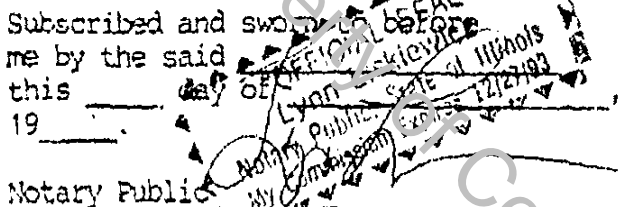 Subscribed and sworn to before
me by the said
this ____ day of
19____.
"OFFICIAL SEAL"
Lynn
Notary Public, State of Illinois
My Commission Expires 12/27/93
Notary Public